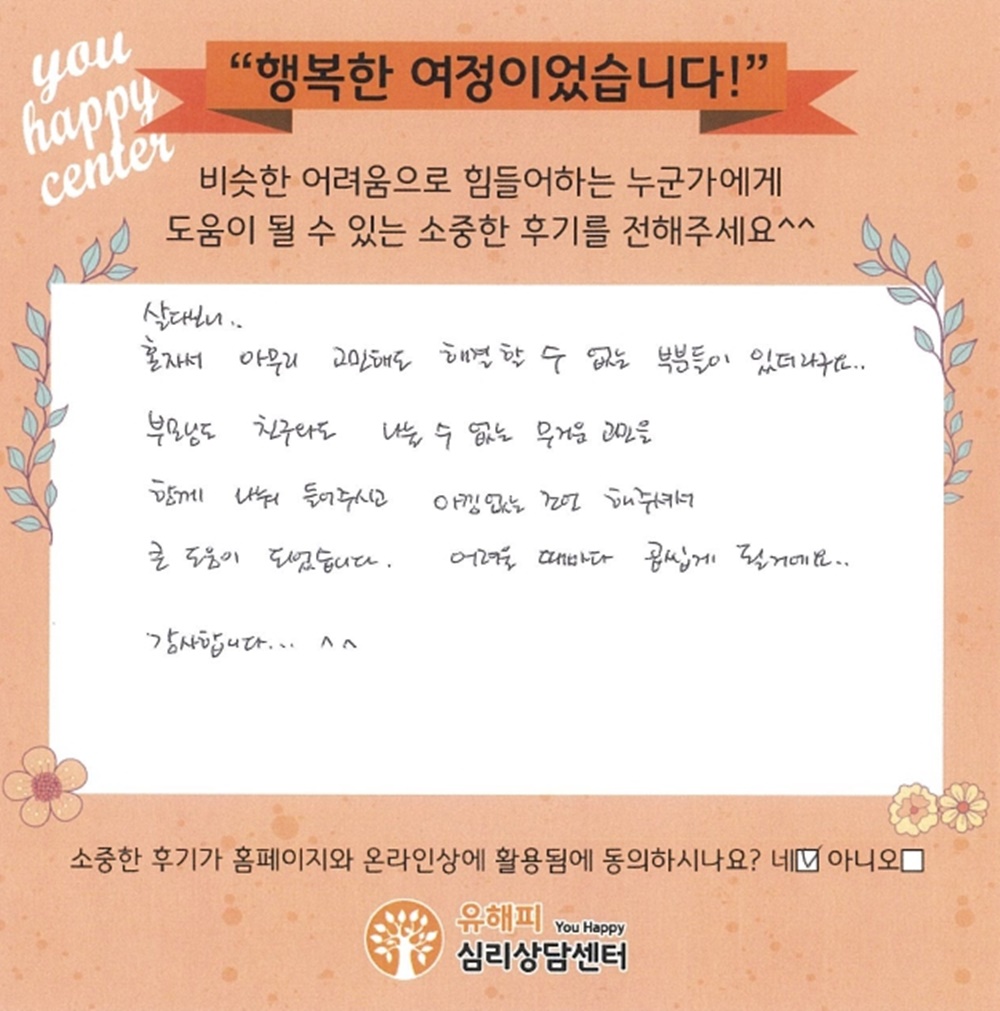 you
happy
center
“행복한 여정이었습니다!”
비슷한 어려움으로 힘들어하는 누군가에게
도움이 될 수 있는 소중한 후기를 전해주세요^^
살다보니..
혼자서 아무리 고민해도 해결할 수 없는 부분들이 있더라구요..
부모님도 친구와도 나눌 수 없는 무거운 고민을
함께 나눠 들어주시고 아낌없는 조언 해주셔서
큰 도움이 되었습니다. 어려울 때마다 곱씹게 될거예요..
감사합니다... ^^
소중한 후기가 홈페이지와 온라인상에 활용됨에 동의하시나요? 네☑ 아니오☐
유해피 You Happy
심리상담센터